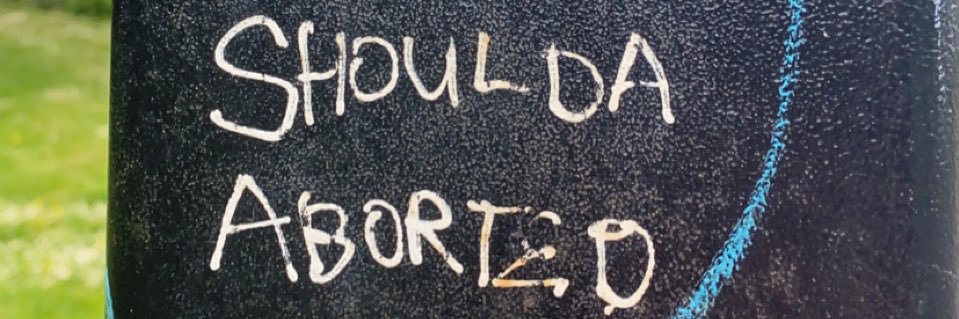 SHOULDA
ABORTED